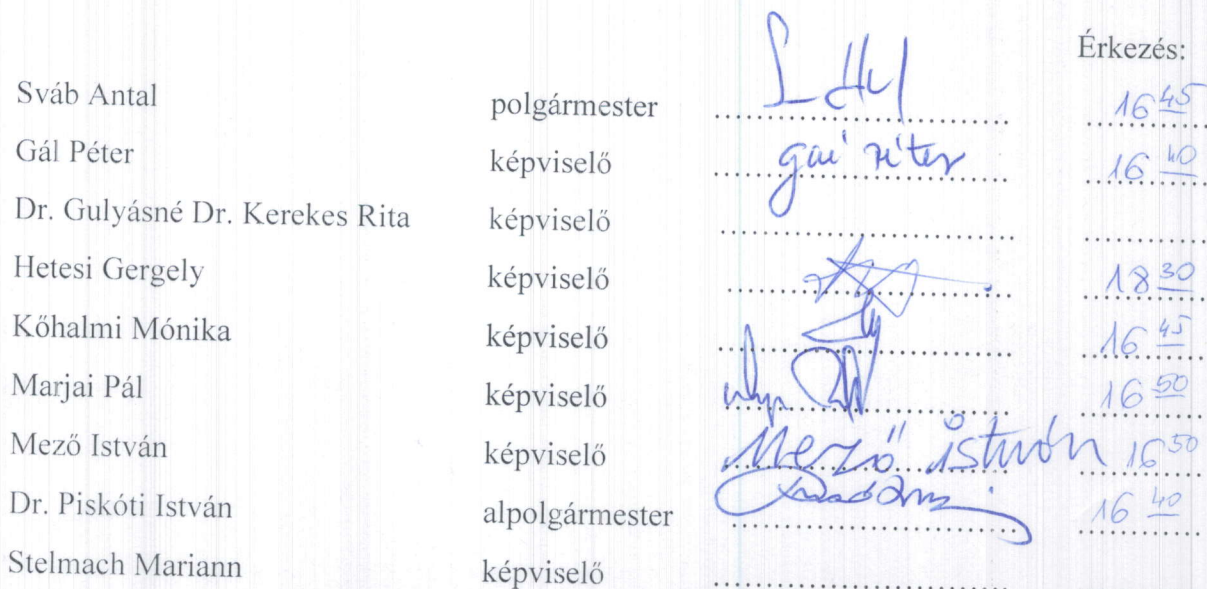 Érkezés:
Sváb Antal polgármester .................... 16 45
Gál Péter képviselő gál péter 16 40
Dr. Gulyásné Dr. Kerekes Rita képviselő .................... ....................
Hetesi Gergely képviselő .................... 18 30
Kőhalmi Mónika képviselő .................... 16 45
Marjai Pál képviselő .................... 16 50
Mező István képviselő Mező István 16 50
Dr. Piskóti István alpolgármester .................... 16 40
Stelmach Mariann képviselő ....................